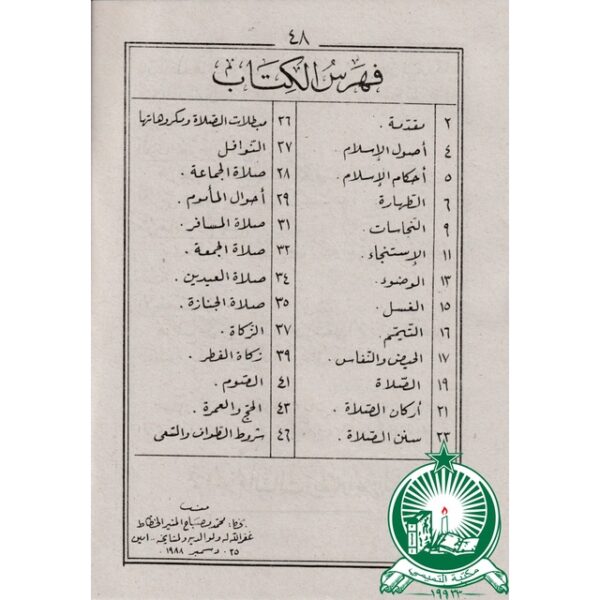 ٤٨
فهرس الكتاب
٢ مقدمة .
٤ أصول الإسلام
٥ أحكام الإسلام .
٦ الطهارة
٩ النجاسات .
١١ الإستنجاء .
١٣ الوضوء .
١٥ الغسل .
١٦ التيمم
١٧ الحيض والنفاس .
١٩ الصلاة
٢١ أركان الصلاة .
٢٣ سنن الصلاة .
٢٦ مبطلات الصلاة ومكروهاتها
٢٧ النوافل
٢٨ صلاة الجماعة .
٢٩ أحوال المأموم .
٣١ صلاة المسافر .
٣٢ صلاة الجمعة .
٣٤ صلاة العيدين .
٣٥ صلاة الجنازة .
٣٧ الزكاة .
٣٩ زكاة الفطر .
٤١ الصوم .
٤٣ الحج والعمرة .
٤٦ شروط الطواف والسعي
خط : محمد مصباح المنير الخطاط
غفر الله له ولوالديه ولمشايخه . آمين
٢٥ . دسمبر ١٩٨٨
مكتبة التميمي
١٩٩٣